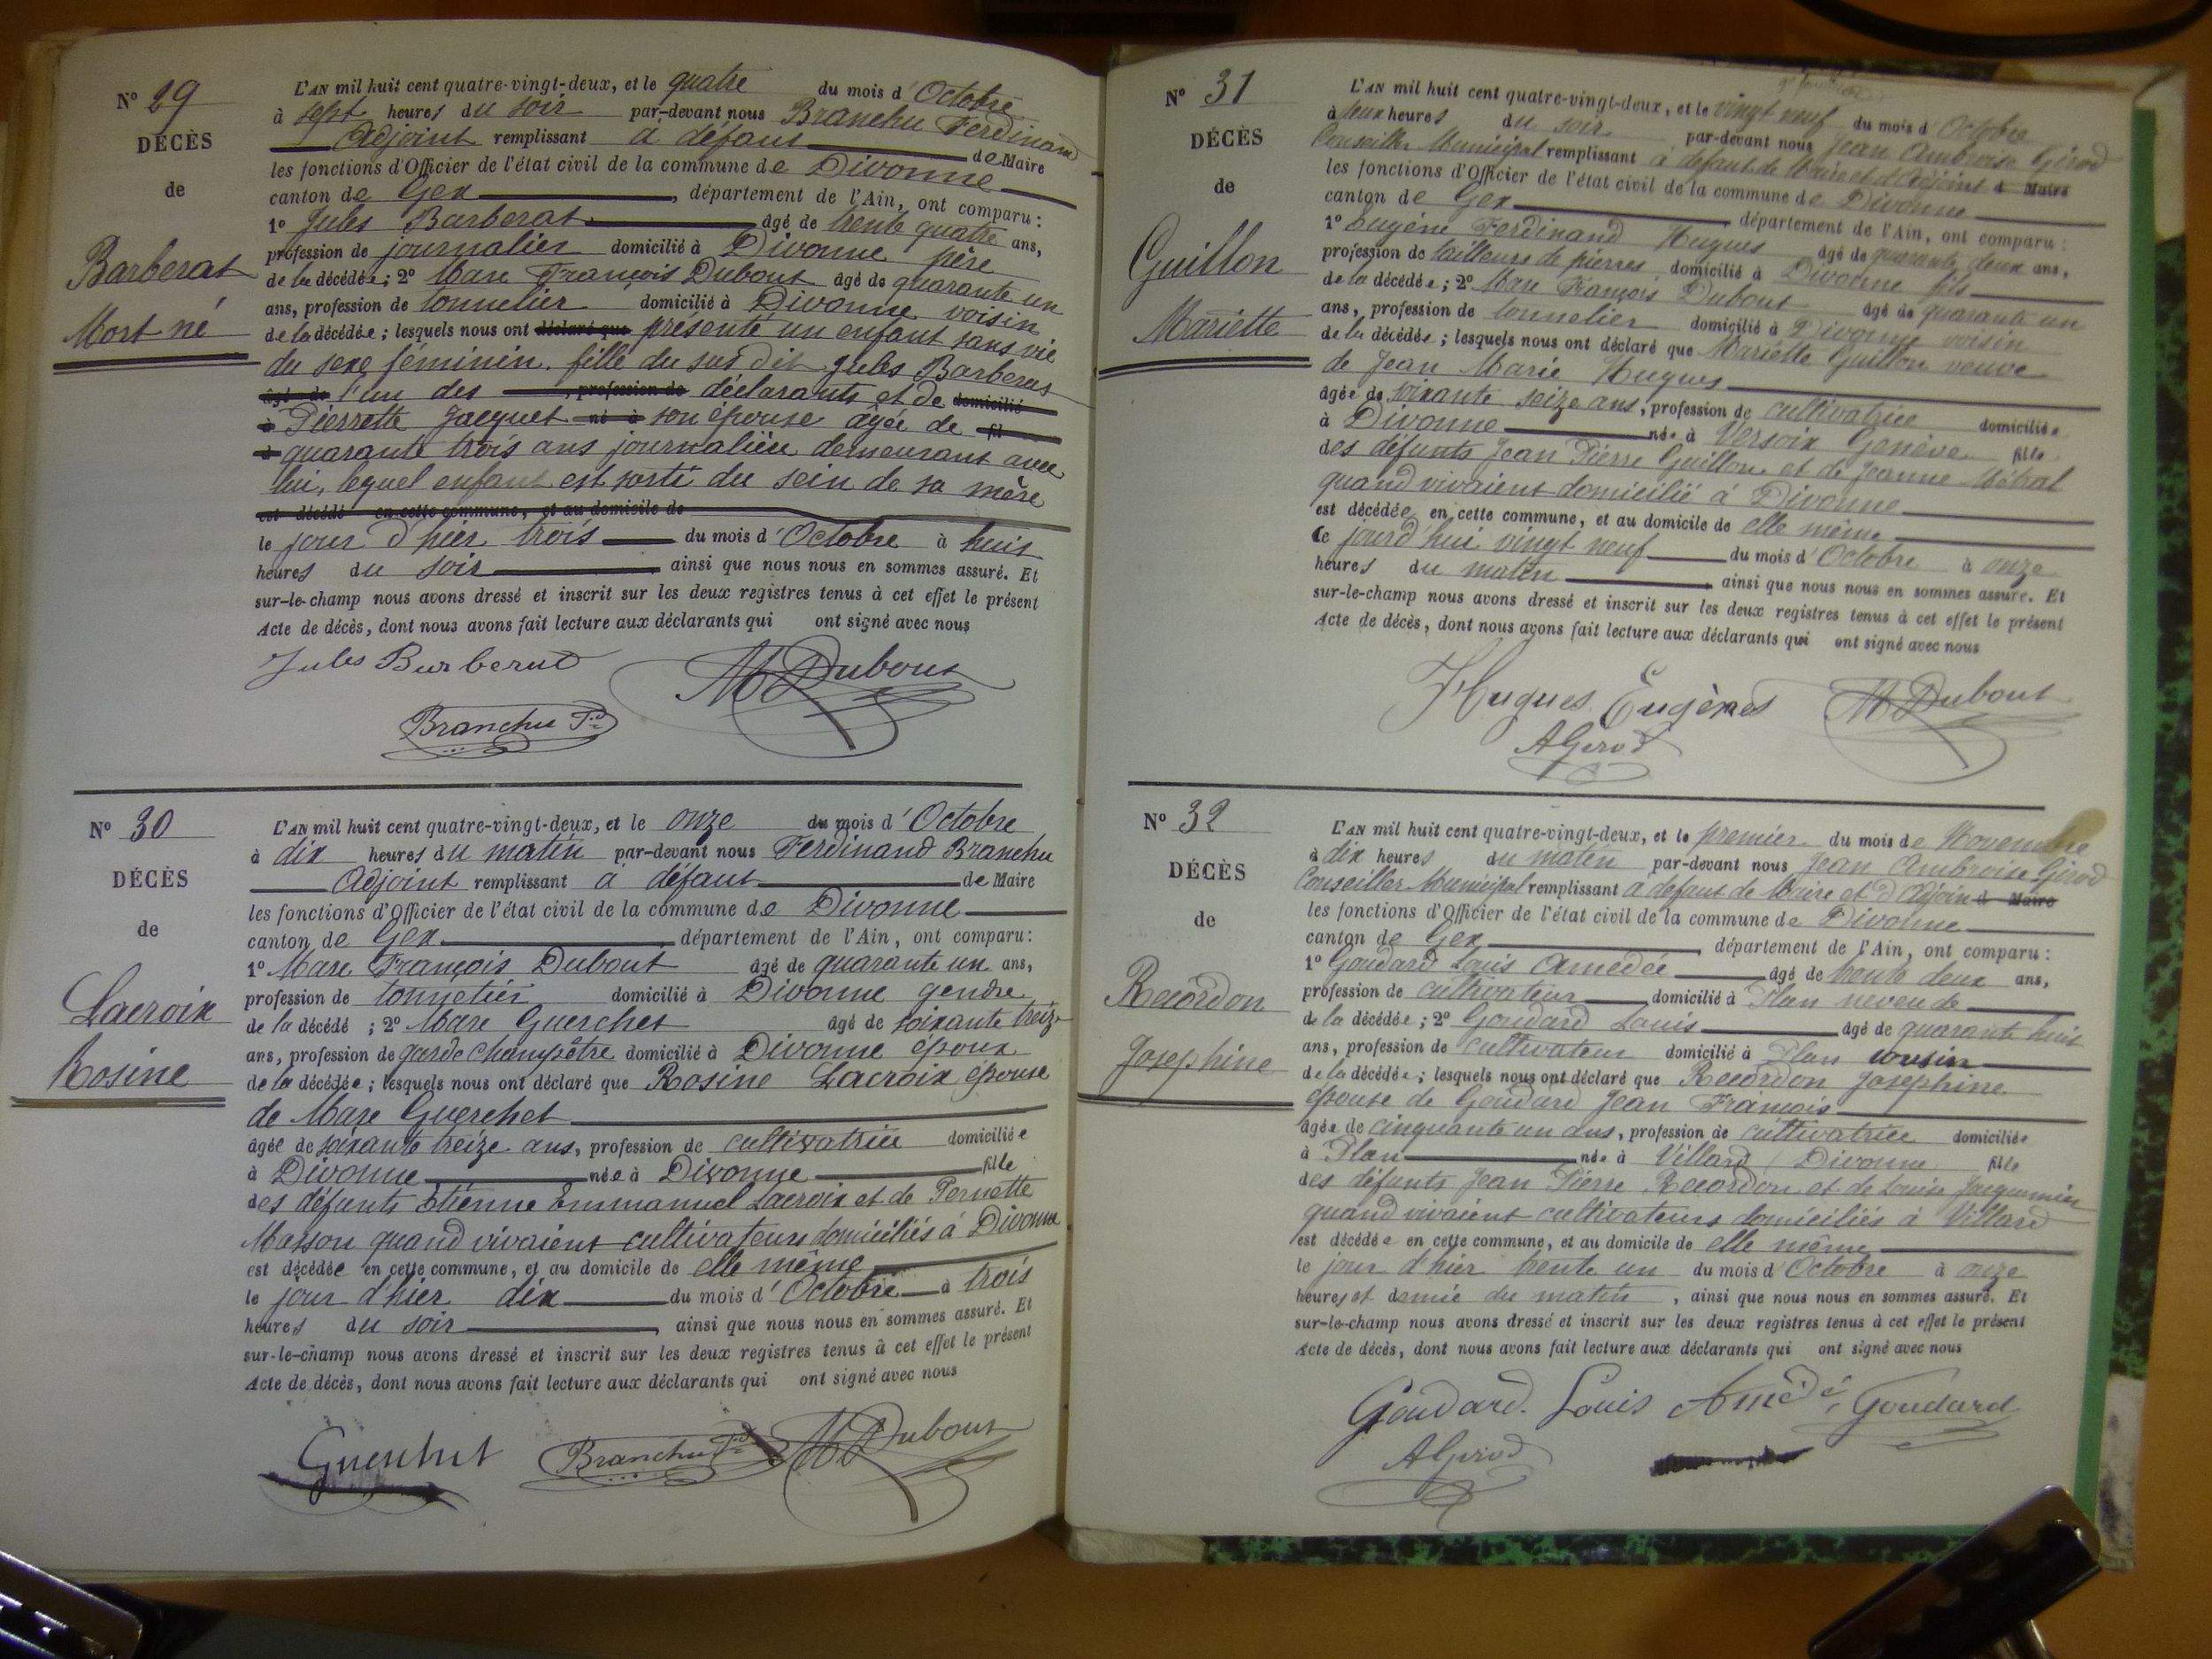 N° 29
DÉCÈS
de
Barberat
Mort né
L'AN mil huit cent quatre-vingt-deux, et le quatre du mois d'Octobre
à sept heures du soir par-devant nous Branchu Ferdinand
Adjoint remplissant à défaut de Maire
les fonctions d'Officier de l'état civil de la commune de Divonne
canton de Gex, département de l'Ain, ont comparu :
1° Jules Barberat âgé de trente quatre ans,
profession de journalier domicilié à Divonne père
de la décédée ; 2° Marc François Dubout âgé de quarante un
ans, profession de tonnelier domicilié à Divonne voisin
de la décédée ; lesquels nous ont déclaré que présenté un enfant sans vie
du sexe féminin. fille du sus dit Jules Barberat
âgé de l'un des , profession de déclarants et de domicilié
à Pierrette Jacquet né à son épouse âgée de fil
à quarante trois ans journalière demeurant avec
lui, lequel enfant est sorti du sein de sa mère
est décédé en cette commune, et au domicile de
le jour d'hier trois du mois d'Octobre à huit
heures du soir ainsi que nous nous en sommes assuré. Et
sur-le-champ nous avons dressé et inscrit sur les deux registres tenus à cet effet le présent
Acte de décès, dont nous avons fait lecture aux déclarants qui ont signé avec nous
Jules Barberat
M Dubout
Branchu Fd
N° 30
DÉCÈS
de
Lacroix
Rosine
L'AN mil huit cent quatre-vingt-deux, et le onze du mois d'Octobre
à dix heures du matin par-devant nous Ferdinand Branchu
Adjoint remplissant à défaut de Maire
les fonctions d'Officier de l'état civil de la commune de Divonne
canton de Gex département de l'Ain, ont comparu :
1° Marc François Dubout âgé de quarante un ans,
profession de tonnelier domicilié à Divonne gendre
de la décédé ; 2° Marc Guerchet âgé de soixante treize
ans, profession de garde champêtre domicilié à Divonne époux
de la décédée ; lesquels nous ont déclaré que Rosine Lacroix épouse
de Marc Guerchet
âgée de soixante treize ans, profession de cultivatrice domiciliée
à Divonne née à Divonne fille
des défunts Etienne Emmanuel Lacroix et de Pernette
Masson quand vivaient cultivateurs domiciliés à Divonne
est décédée en cette commune, et au domicile de elle même
le jour d'hier dix du mois d'Octobre à trois
heures du soir, ainsi que nous nous en sommes assuré. Et
sur-le-champ nous avons dressé et inscrit sur les deux registres tenus à cet effet le présent
Acte de décès, dont nous avons fait lecture aux déclarants qui ont signé avec nous
Guerchet
Branchu Fd
M Dubout
N° 31
DÉCÈS
de
Guillon
Mariette
L'AN mil huit cent quatre-vingt-deux, et le vingt neuf du mois d'Octobre
à deux heures du soir par-devant nous Jean Ambroise Girod
Conseiller Municipal remplissant à défaut de Maire et d'Adjoint d Maire
les fonctions d'Officier de l'état civil de la commune de Divonne
canton de Gex département de l'Ain, ont comparu :
1° Eugène Ferdinand Hugues âgé de quarante deux ans,
profession de tailleurs de pierres domicilié à Divonne fils
de la décédée ; 2° Marc François Dubout âgé de quarante un
ans, profession de tonnelier domicilié à Divonne voisin
de la décédée ; lesquels nous ont déclaré que Mariette Guillon veuve
de Jean Marie Hugues
âgée de soixante seize ans, profession de cultivatrice domiciliée
à Divonne née à Versoix Genève fille
des défunts Jean Pierre Guillon et de Jeanne Métral
quand vivaient domicilié à Divonne
est décédée en cette commune, et au domicile de elle même
le jourd'hui vingt neuf du mois d'Octobre à onze
heures du matin ainsi que nous nous en sommes assuré. Et
sur-le-champ nous avons dressé et inscrit sur les deux registres tenus à cet effet le présent
Acte de décès, dont nous avons fait lecture aux déclarants qui ont signé avec nous
Hugues Eugènes
M Dubout
A Girod
N° 32
DÉCÈS
de
Recordon
Josephine
L'AN mil huit cent quatre-vingt-deux, et le premier du mois de Novembre
à dix heures du matin par-devant nous Jean Ambroise Girod
Conseiller Municipal remplissant à défaut de Maire et d'Adjoin d Maire
les fonctions d'Officier de l'état civil de la commune de Divonne
canton de Gex, département de l'Ain, ont comparu :
1° Goudard Louis Amédée âgé de trente deux ans,
profession de cultivateur, domicilié à Plan neveu de
de la décédée ; 2° Goudard Louis âgé de quarante huit
ans, profession de cultivateur domicilié à Plan cousin
de la décédée ; lesquels nous ont déclaré que Recordon Josephine
épouse de Goudard Jean François
âgée de cinquante un ans, profession de cultivatrice domiciliée
à Plan née à Villard / Divonne fille
des défunts Jean Pierre Recordon et de Louise Jacquemin
quand vivaient cultivateurs domiciliés à Villard
est décédée en cette commune, et au domicile de elle même
le jour d'hier trente un du mois d'Octobre à onze
heures et demie du matin, ainsi que nous nous en sommes assuré. Et
sur-le-champ nous avons dressé et inscrit sur les deux registres tenus à cet effet le présent
Acte de décès, dont nous avons fait lecture aux déclarants qui ont signé avec nous
Goudard. Louis Amédé, Goudard
A Girod